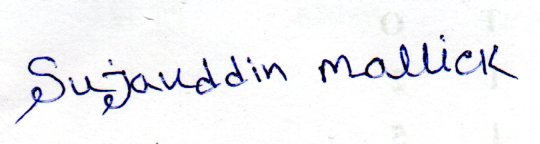 Sujauddin mallick